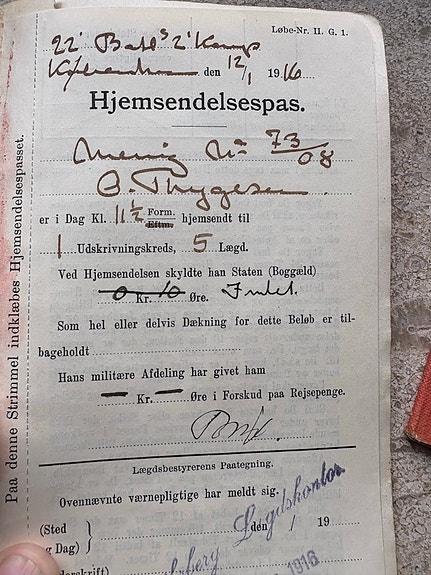 Løbe-Nr. II. G. 1.
22' Bat's 2' Komp
København den 12/1 1916
Hjemsendelsespas.
Menig No 73/08
Thygesen
er i Dag Kl. 11½ Form. Eftm. hjemsendt til
1 Udskrivningskreds, 5 Lægd.
Ved Hjemsendelsen skyldte han Staten (Boggæld)
0 Kr. 10 Øre. Intet.
Som hel eller delvis Dækning for dette Beløb er til-
bageholdt
Hans militære Afdeling har givet ham
— Kr. — Øre i Forskud paa Rejsepenge.
Lægdsbestyrerens Paategning.
Ovennævnte værnepligtige har meldt sig.
(Sted
og Dag) } den / 19
Lægdskontor
1916
Paa denne Strimmel indklæbes Hjemsendelsespasset.